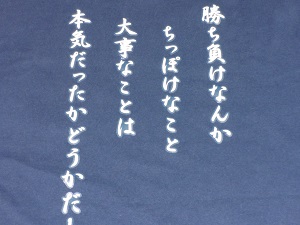 勝ち負けなんか
ちっぽけなこと
大事なことは
本気だったかどうかだ!